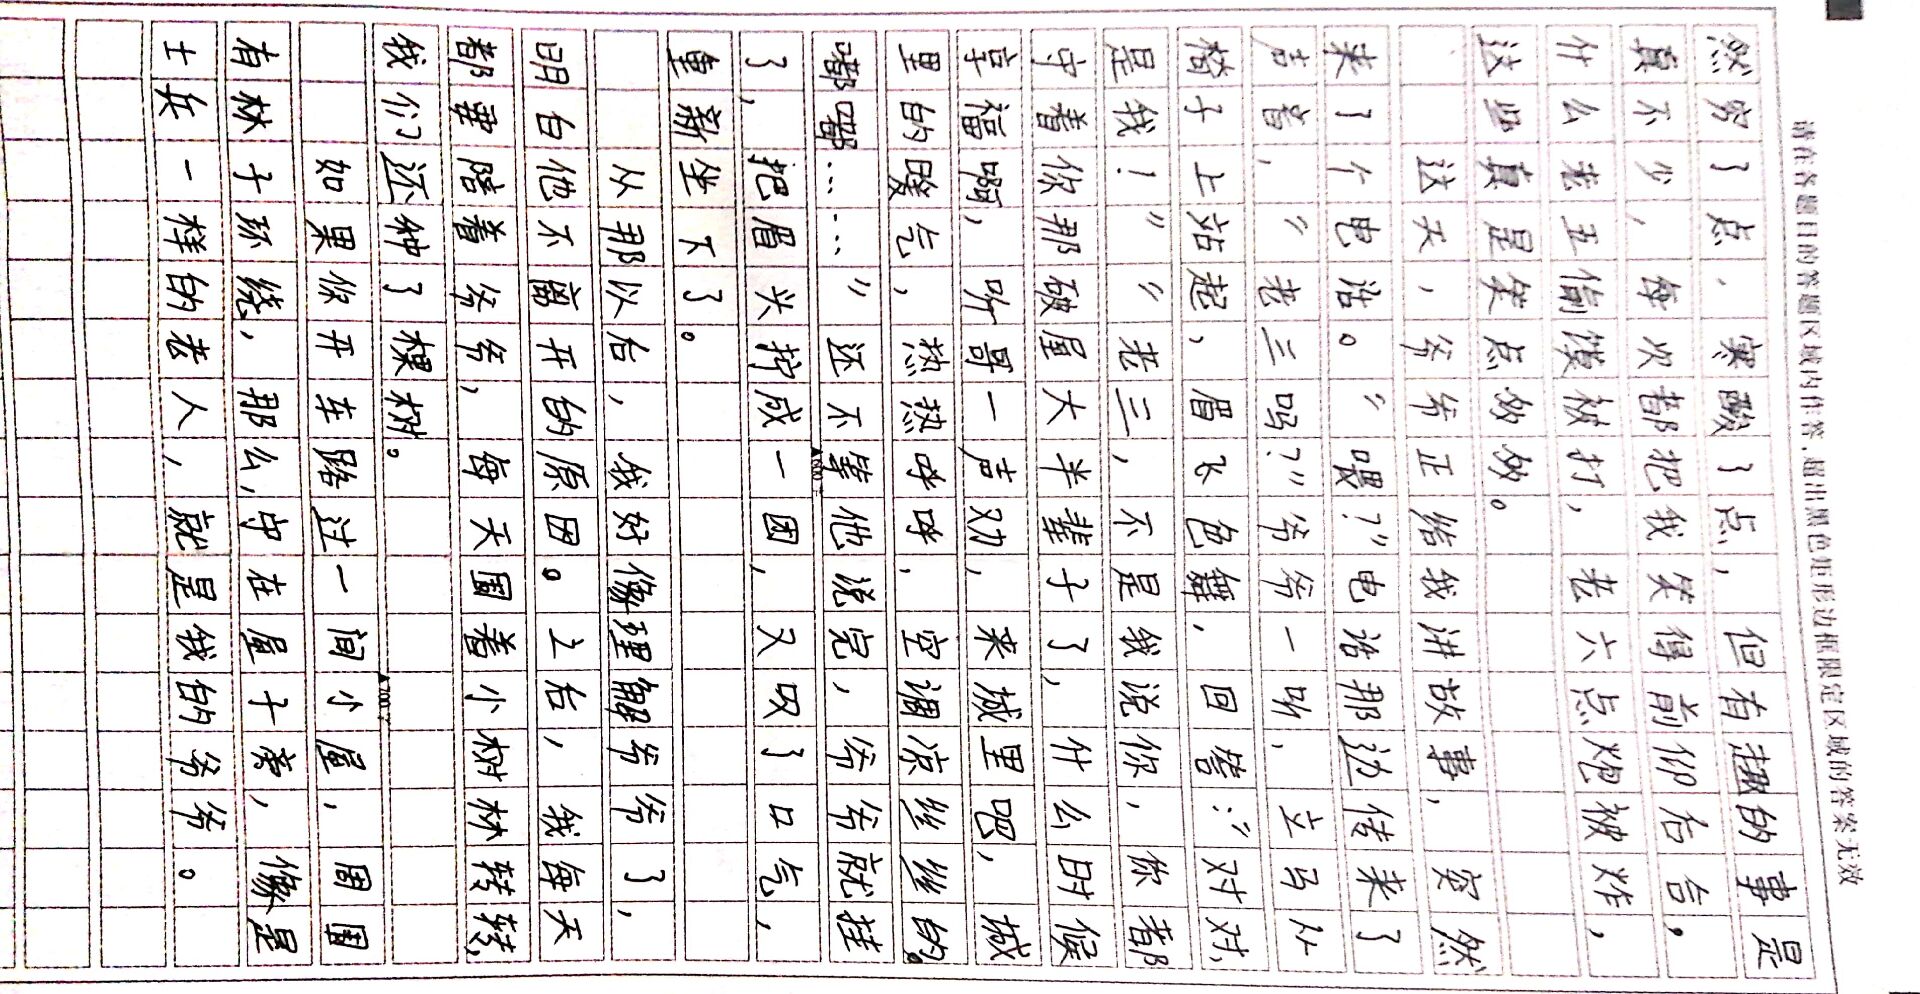 请在各题目的答题区域内作答，超出黑色矩形边框限定区域的答案无效
然穷了点，寒酸了点，但有趣的事是
真不少，每次都把我笑得前仰后合，
什么老王偷馍被打，老六点炮被炸，
这些真是笑点妙妙。
这天，爷爷正给我讲故事，突然
来了个电话。“喂？”电话那边传来了
声音，“老三吗？”爷爷一听，立马从
椅子上站起，眉飞色舞，回答：“对对，
是我！”“老三，不是我说你，你都
守着你那破屋大半辈子了，什么时候
享福啊，听哥一声劝，来城里吧，城
里的暖气，热热呼呼，空调凉丝丝的。
嘟嘟……”还不等他说完，爷爷就挂
▲600字
了，把眉头拧成一团，又叹了口气，
重新坐下了。
从那以后，我好像理解爷爷了，
明白他不离开的原因。之后，我每天
都要陪着爷爷，每天围着小树林转转，
我们还种了棵树。
▲700字
如果你开车路过一间小屋，周围
有林子环绕，那么，守在屋子旁，像是
士兵一样的老人，就是我的爷爷。